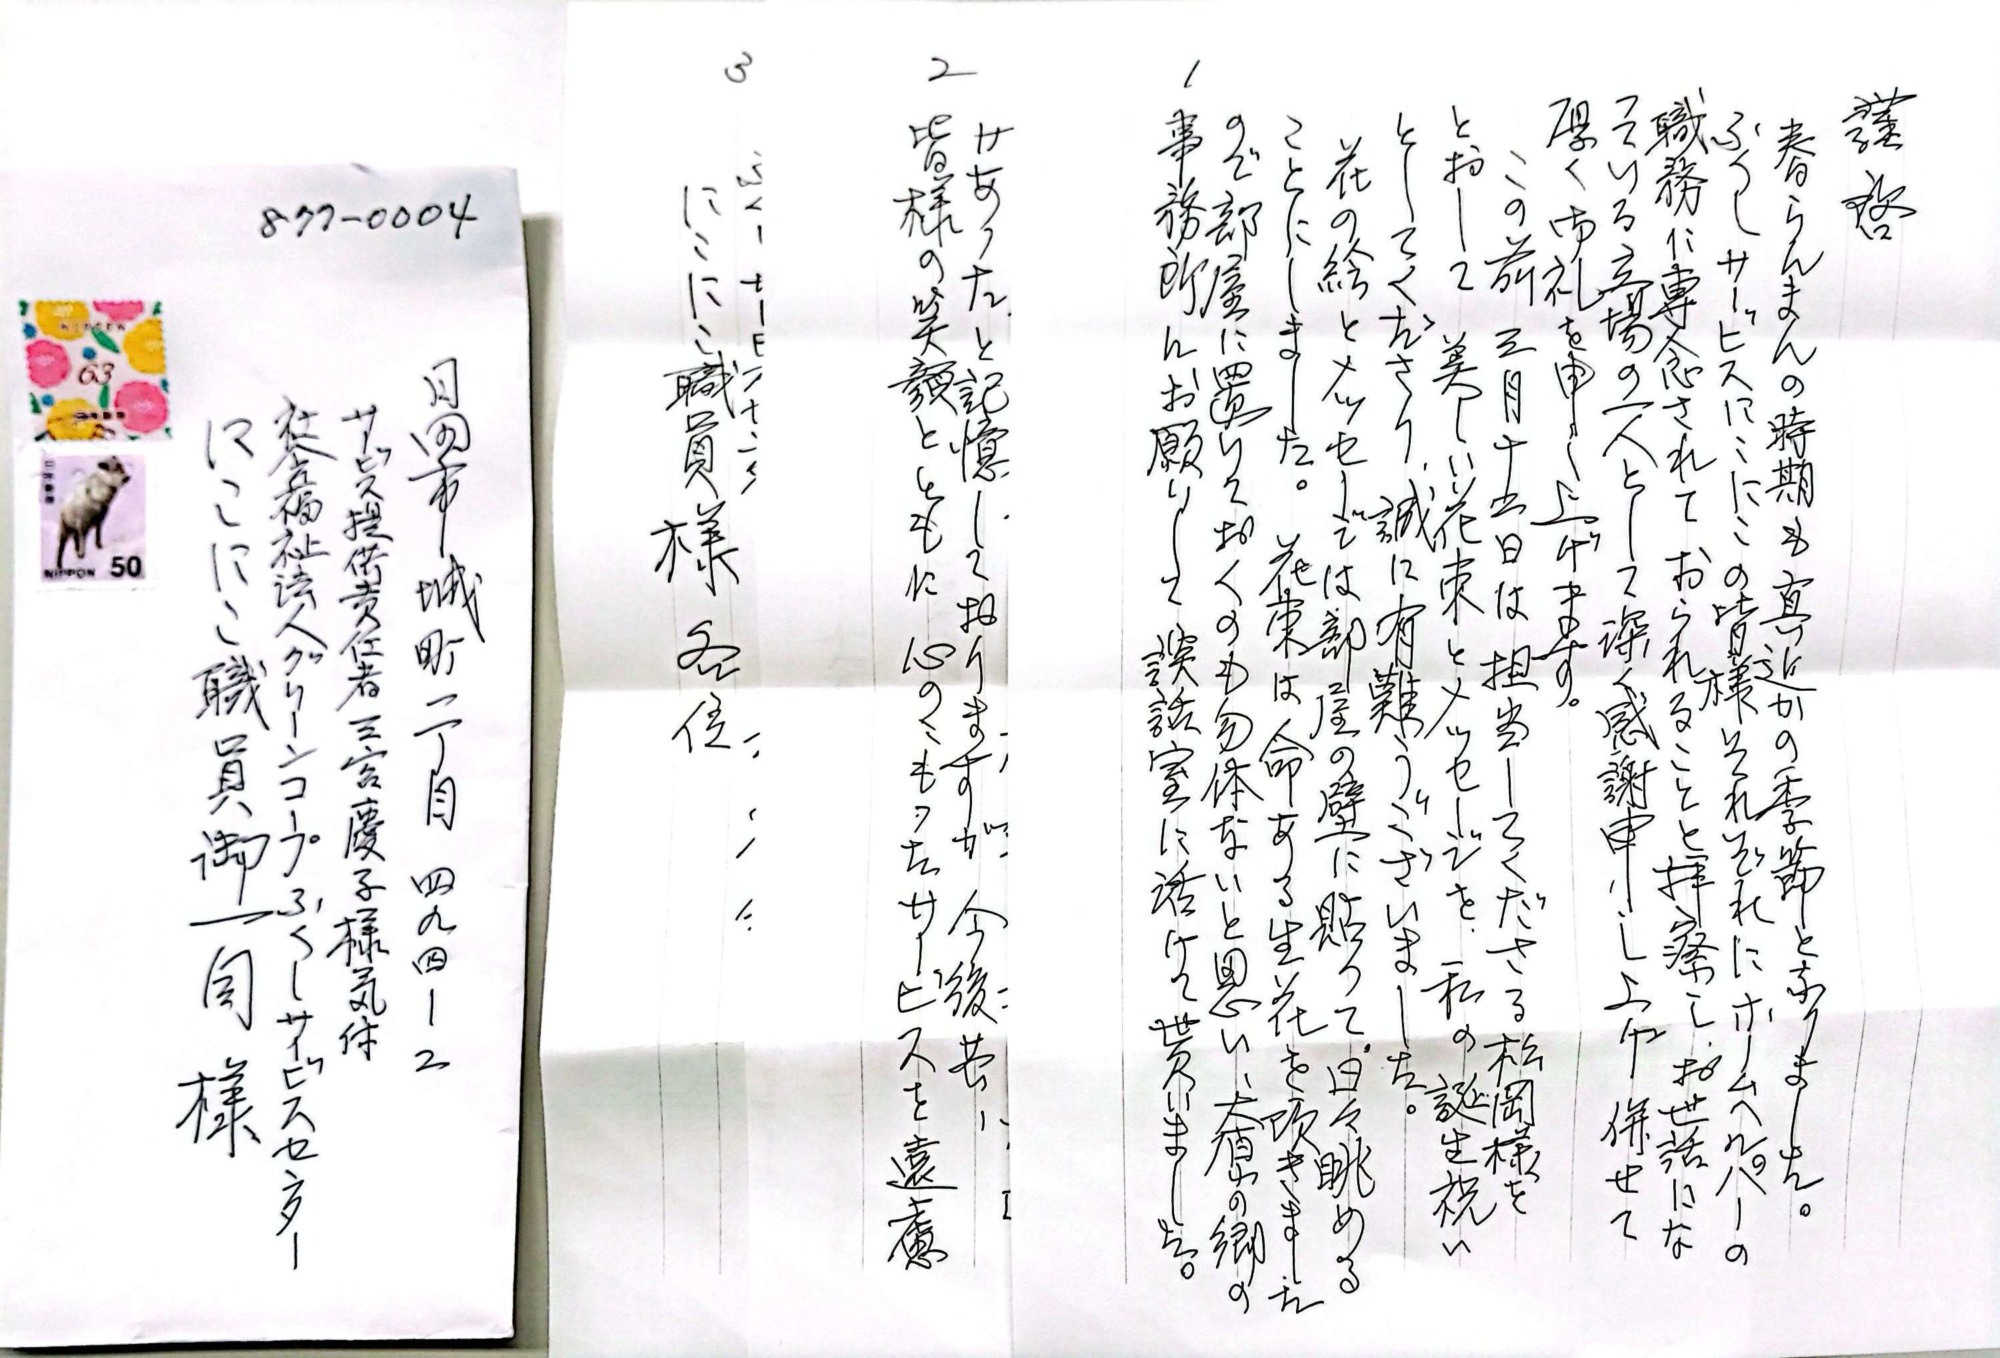 謹啓
春らんまんの時期も真近かの季節となりました。
ふくしサービスにこにこの皆様それぞれにホームヘルパーの
職務に専念されておられることと拝察し、お世話にな
っている立場の一人として深く感謝申し上げ併せて
厚く御礼を申し上げます。
この前三月十五日は担当してくださる松岡様を
とおして美しい花束とメッセージを、私の誕生祝い
としてくださり、誠に有難うございました。
花の絵とメッセージは部屋の壁に貼って日々眺める
ことにしました。花束は命ある生花を頂きました
ので部屋に置いておくのも勿体ないと思い、大肩の郷の
事務所にお願いして談話室に活けて貰いました。
1
サあったと記憶しておりますが 今後
皆様の笑顔とともに心のこもったサービスを遠慮
2
ふくしサービスセンター
にこにこ職員様 各位
3
877-0004
日田市城町二丁目四九四ー二
サービス提供責任者 三宮慶子様気付
社会福祉法人グリーンコープふくしサービスセンター
にこにこ職員御一同様
NIPPON
63
日本郵便
日本郵便
NIPPON 50